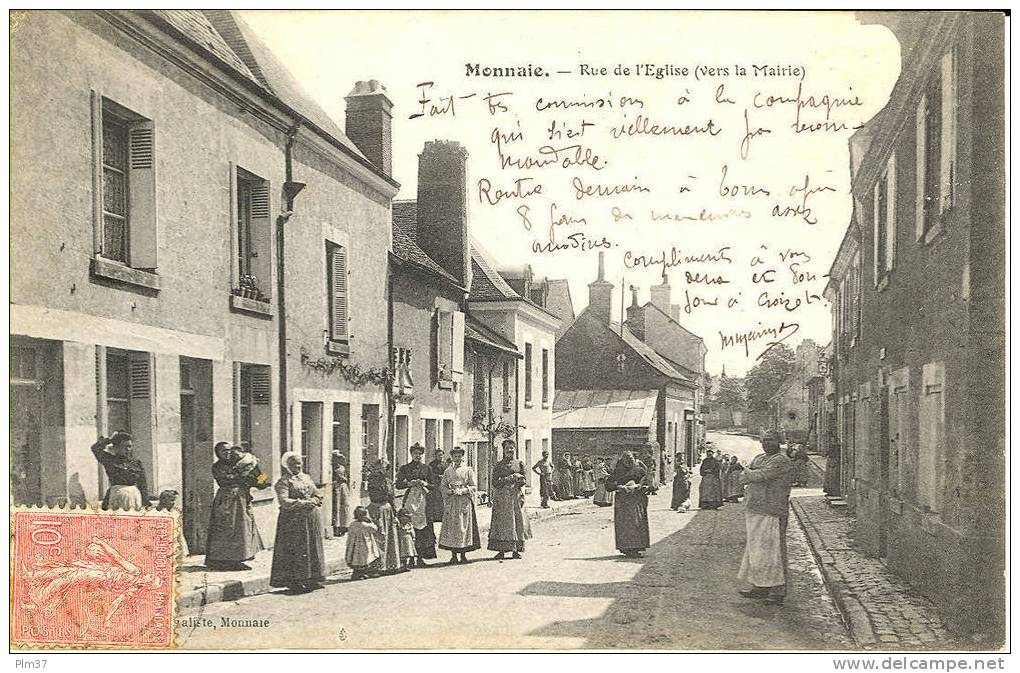 Monnaie. — Rue de l'Eglise (vers la Mairie)
Fait tes commissions à la Compagnie
qui s'est réellement
mandable.
Rentre demain à Tours
8 jours de manœuvres assez
Compliments à vos
et bon-
jour à Croizot
10c
POSTES
aliste, Monnaie
Plm37
www.delcampe.net